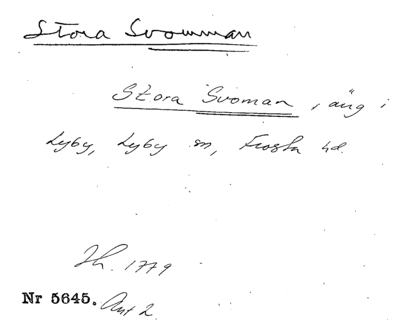 Stora Svomman
Stora Svoman, äng i
Lyby, Lyby sn, Frosta hd.
Jh. 1779
Nr 5645. Akt 2